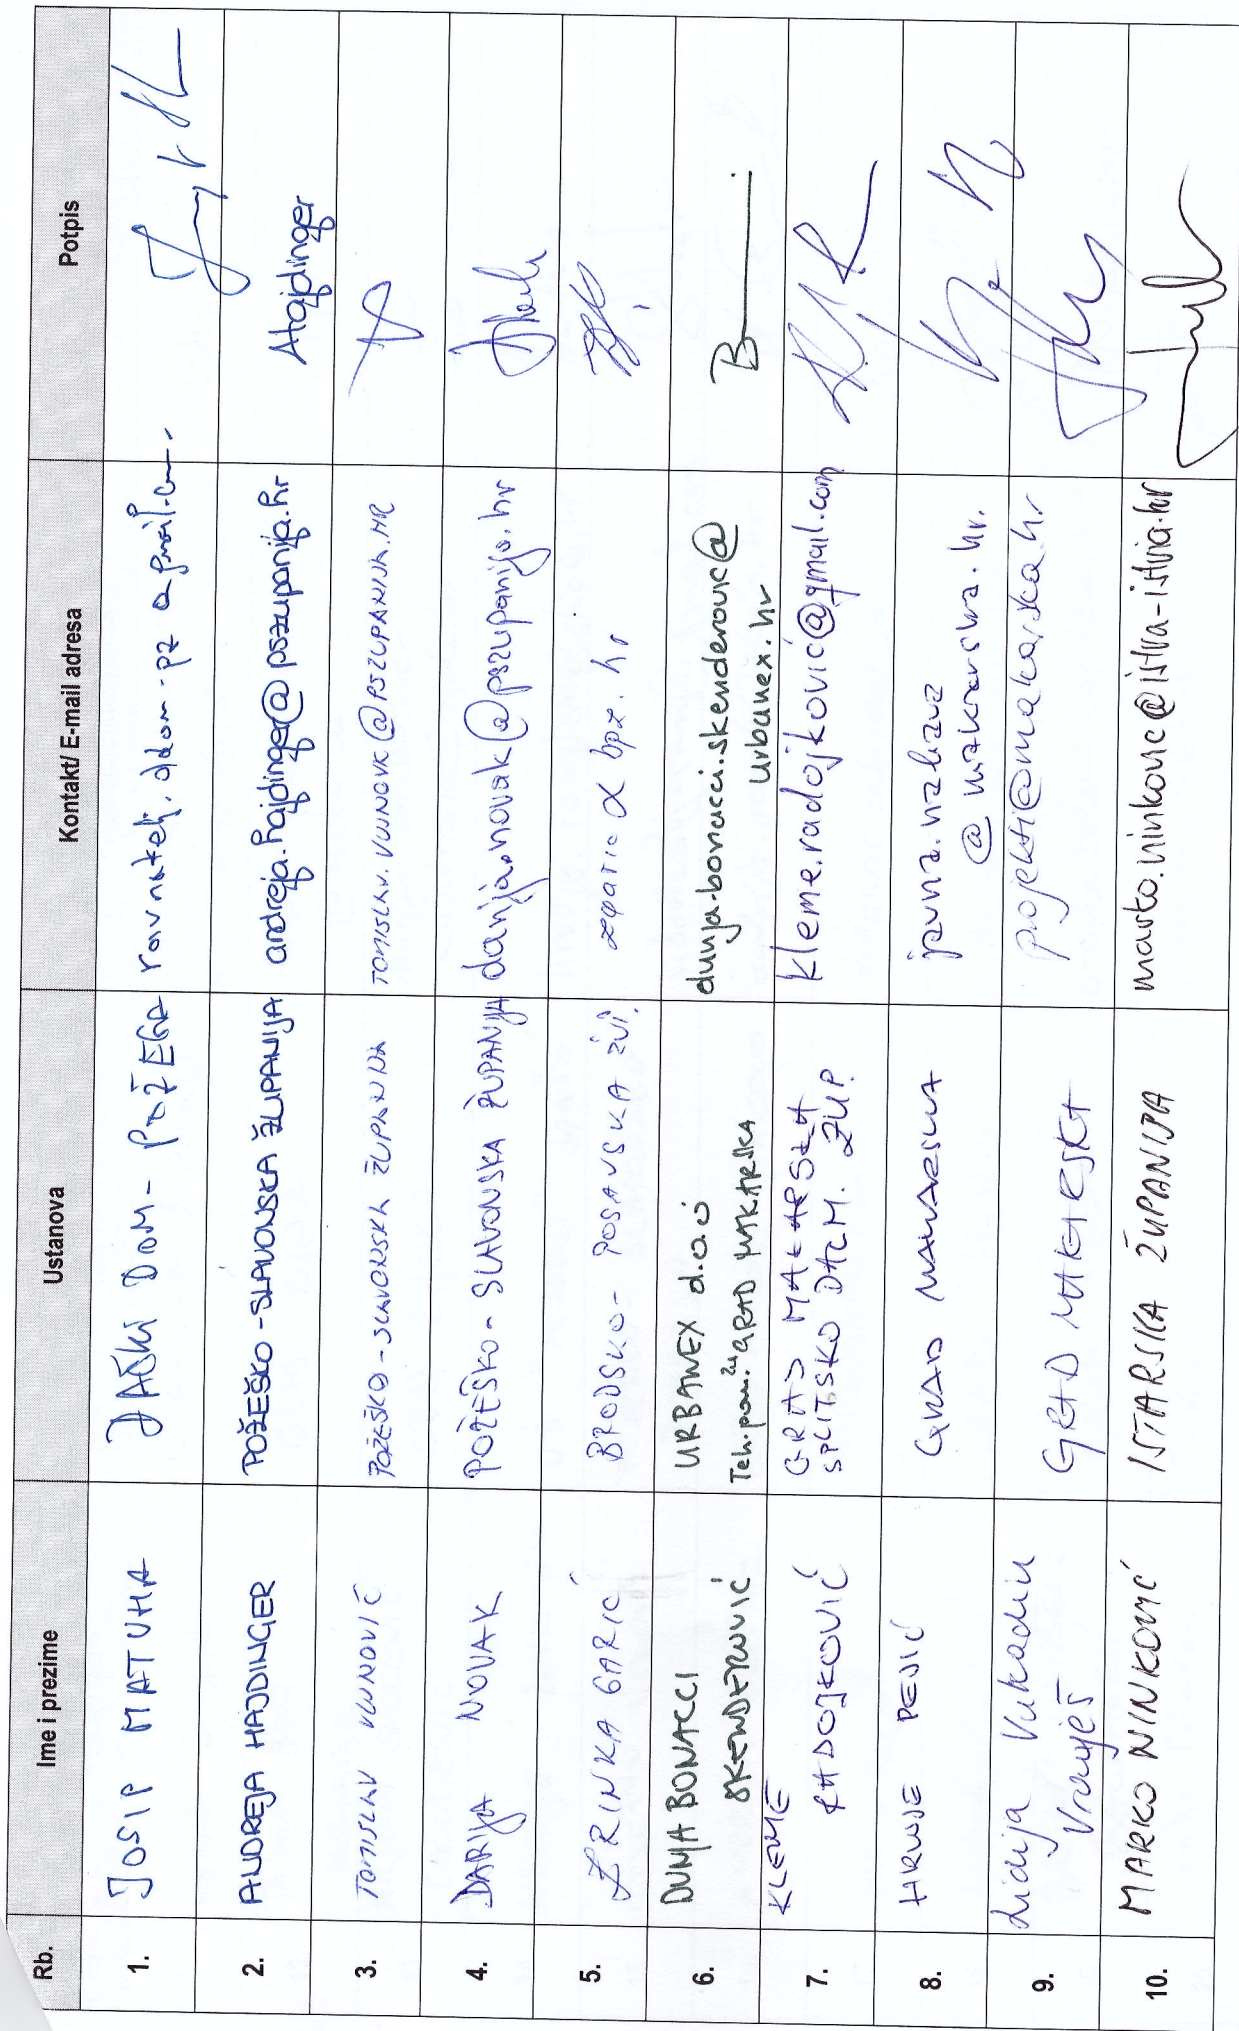 Rb. Ime i prezime Ustanova Kontakt/ E-mail adresa Potpis
1. JOSIP MATUHA ĐAČKI DOM - POŽEGA ravnatelj.ddom-pz@gmail.com
2. ANDREJA HAJDINGER POŽEŠKO-SLAVONSKA ŽUPANIJA andreja.hajdinger@pszupanija.hr AHajdinger
3. TOMISLAV VUJNOVIĆ POŽEŠKO-SLAVONSKA ŽUPANIJA TOMISLAV.VUJNOVIC@PSZUPANIJA.HR
4. DARIJA NOVAK POŽEŠKO-SLAVONSKA ŽUPANIJA darija.novak@pszupanija.hr
5. ZRINKA GARIĆ BRODSKO-POSAVSKA ŽUP. bpz.hr
6. DUNJA BONACCI URBANEX d.o.o dunja-bonacci.skenderovic@
SKENDEROVIĆ Teh.pom. za GRAD MAKARSKA urbanex.hr
7. KLEME GRAD MAKARSKA kleme.radojković@gmail.com
RADOJKOVIĆ SPLITSKO DALM. ŽUP.
8. HRVOJE GRAD MAKARSKA
@makarska.hr.
9. Lidija Vukadin GRAD MAKARSKA projekti@makarska.hr
Vranješ
10. MARKO NINKOVIĆ ISTARSKA ŽUPANIJA marko.ninkovic@istra-istria.hr